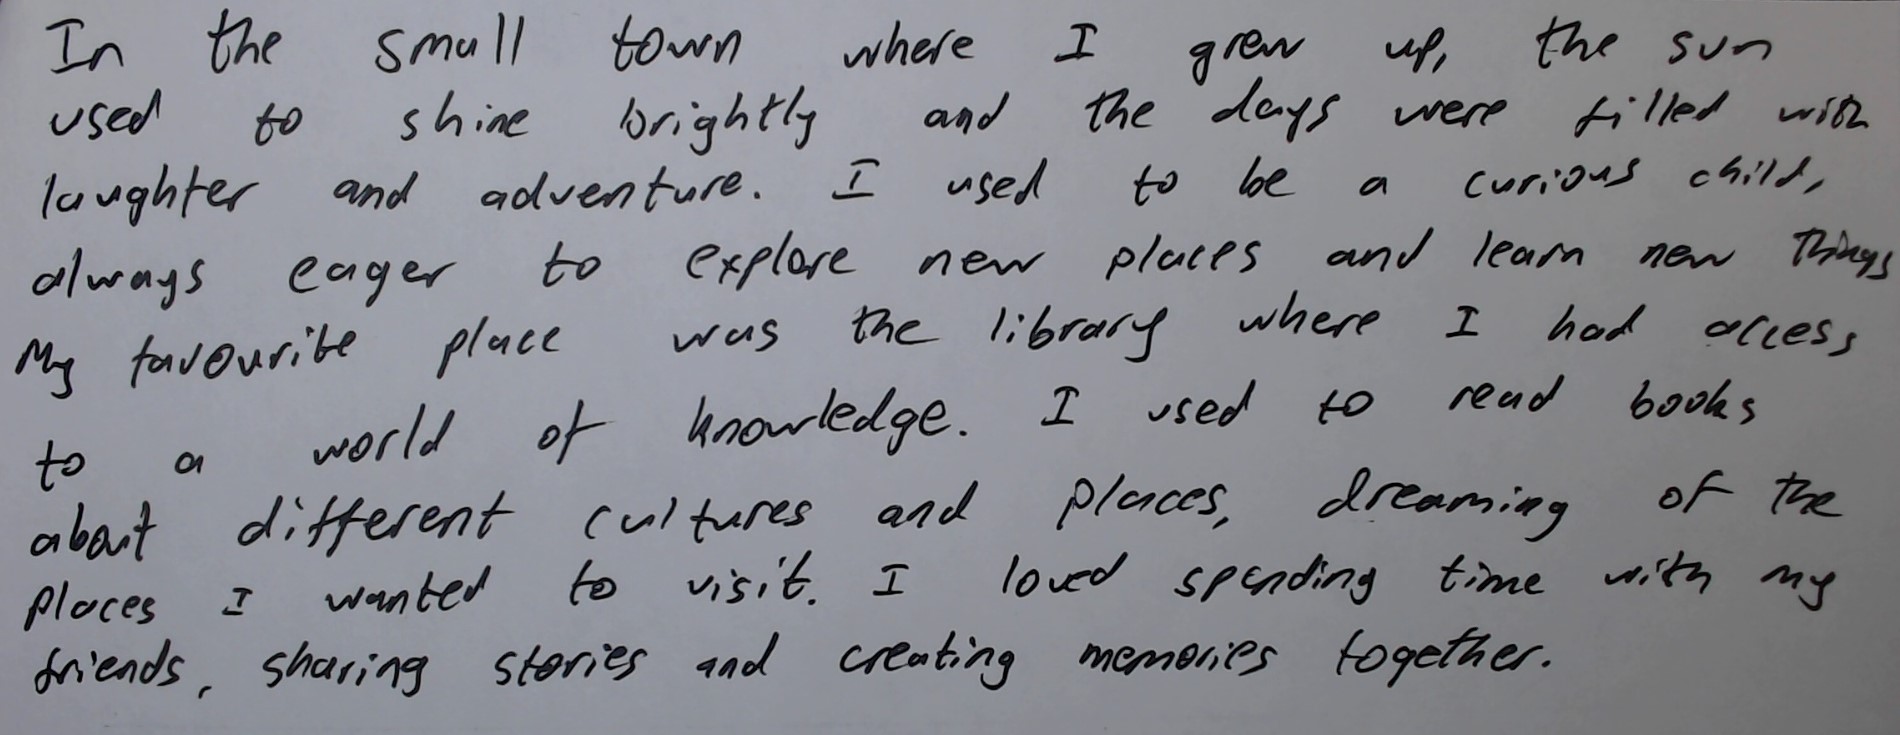 In the small town where I grew up, the sun
used to shine brightly and the days were filled with
laughter and adventure. I used to be a curious child,
always eager to explore new places and learn new things
My favourite place was the library where I had access
to a world of knowledge. I used to read books
about different cultures and places, dreaming of the
places I wanted to visit. I loved spending time with my
friends, sharing stories and creating memories together.